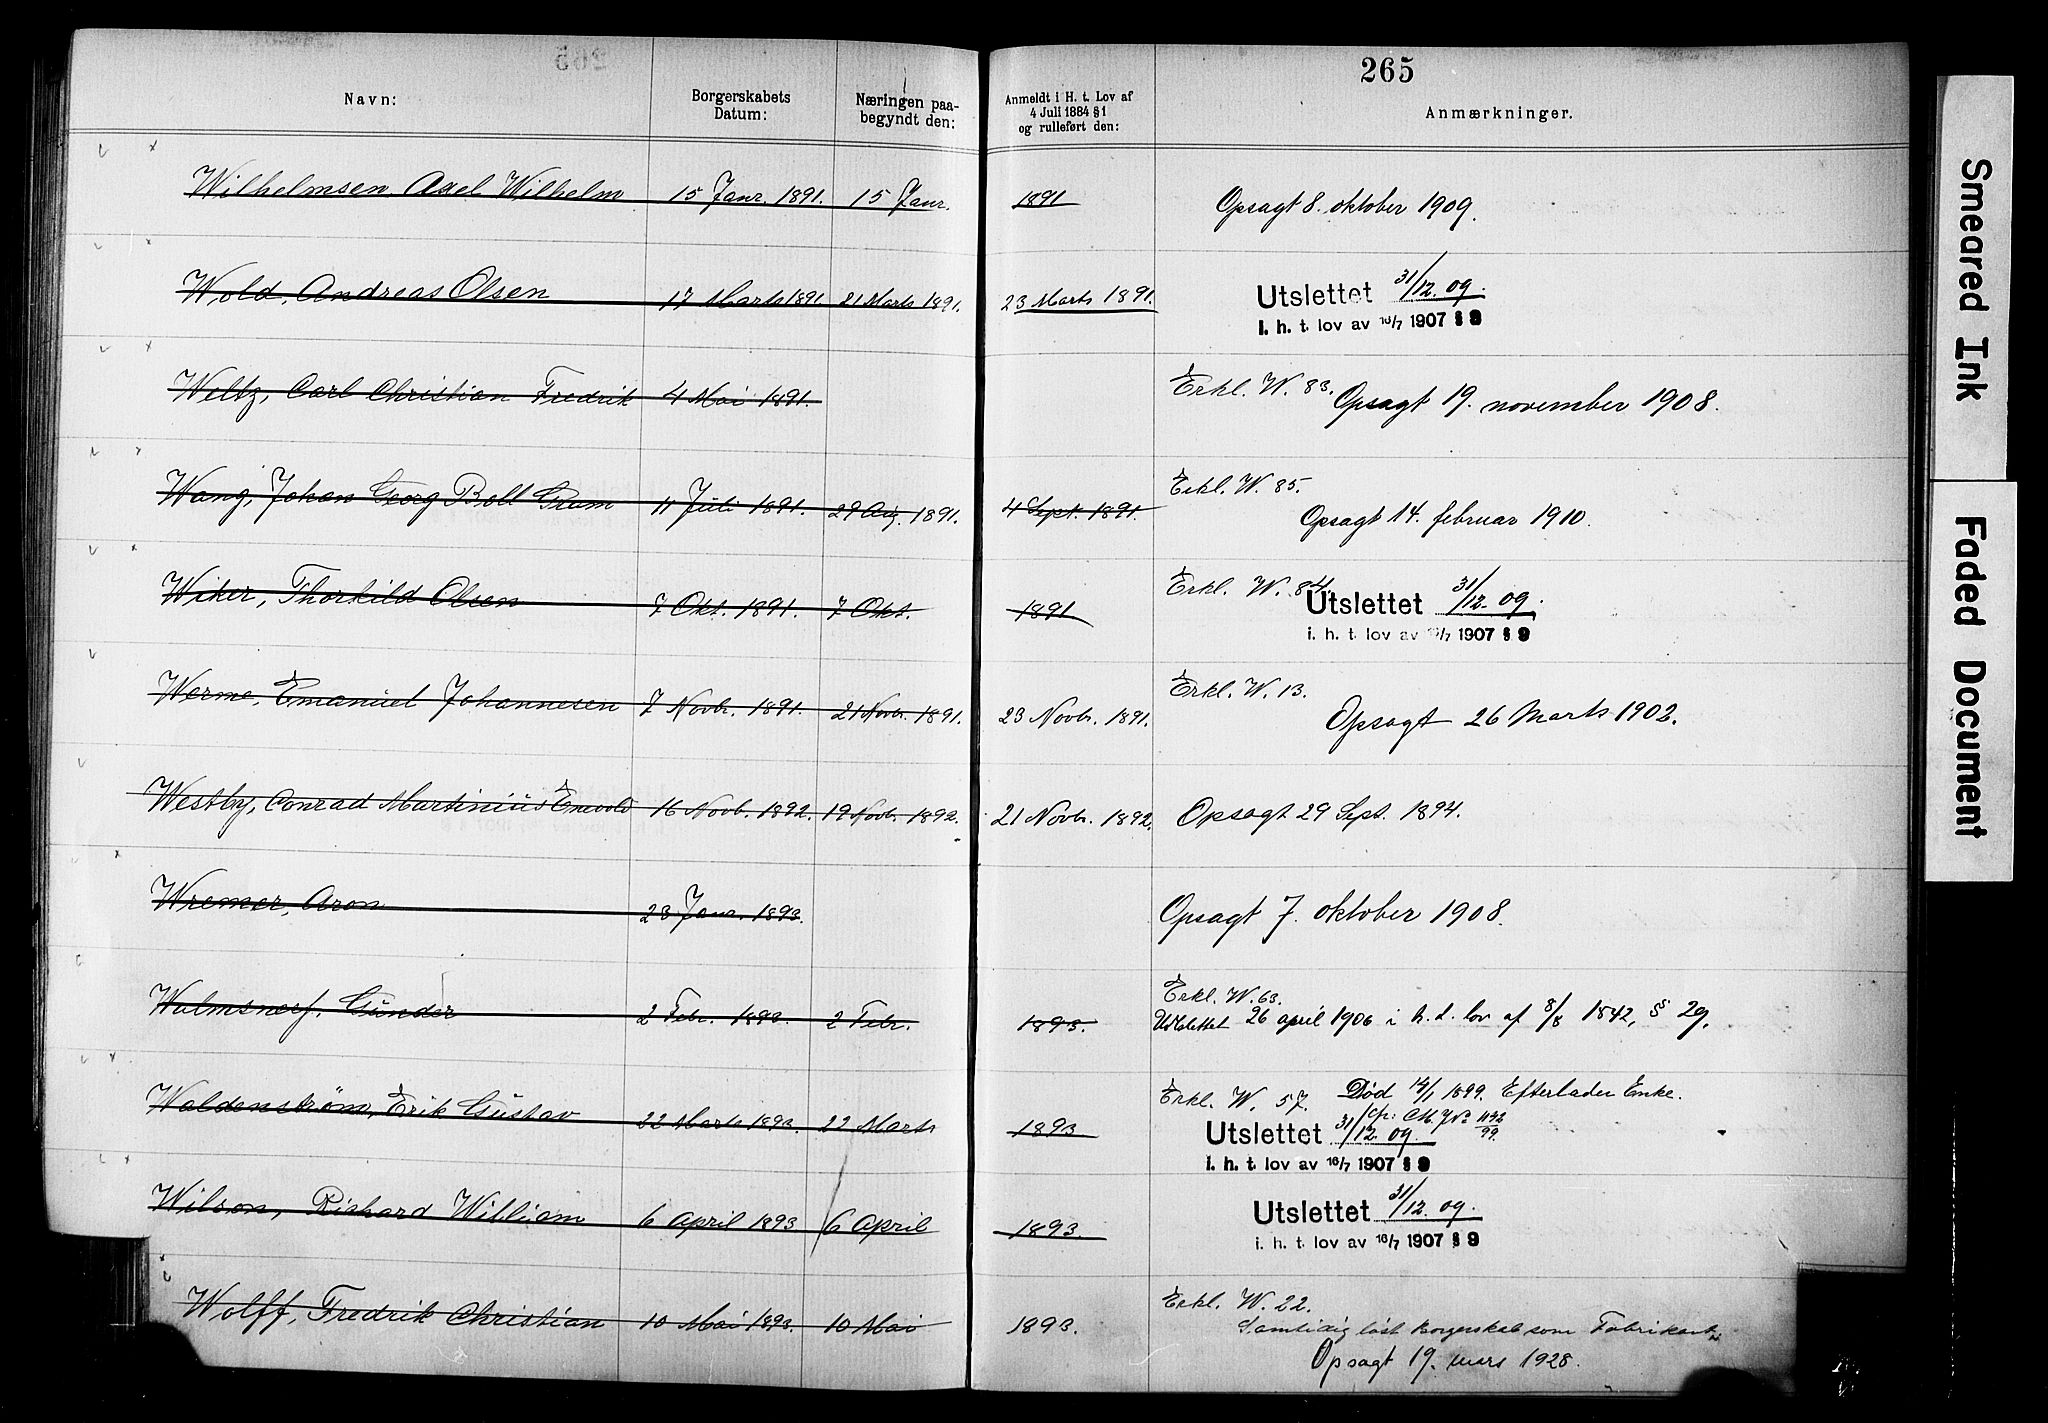 265
Navn:
Borgerskabets Datum:
Næringen paa-begyndt den:
Anmeldt i H. t. Lov af 4 Juli 1884 § 1 og rulleført den:
Anmærkninger.
Wilhelmsen, Axel Wilhelm 15 Janr. 1891. 15 Janr. 1891 Opsagt 8. oktober 1909.
Wold, Andreas Olsen 17 Marts 1891 21 Marts 1891. 23 Marts 1891. Utslettet 31/12. 09.
i. h. t. lov av 16/7 1907 § 9
Weltz, Carl Christian Fredrik 4 Mai 1891. Erkl. W. 83. Opsagt 19. november 1908.
Wang, Johan Georg Boll Gram 11 Juli 1891. 29 Aug. 1891. 4 Sept. 1891. Erkl. W. 85.
Opsagt 14. februar 1910.
Wiker, Thorkild Olsen 7 Okt. 1891 7 Okt. 1891 Erkl. W. 84.
Utslettet 31/12. 09.
i. h. t. lov av /7 1907 § 9
Werme, Emanuel Johannesen 7 Novbr. 1891. 21 Novbr. 1891. 23 Novbr. 1891. Erkl. W. 13.
Opsagt 26 Marts 1902.
Westby, Conrad Martinius Enevold 16 Novb. 1892. 19 Novbr. 1892. 21 Novbr. 1892. Opsagt 29 Sept. 1894.
Wremer, Aron 23 Janr. 1893. Opsagt 7. oktober 1908.
Gunder 2 Febr. 1893. 2 Febr. 1893. Erkl. W. 63.
Udslettet 26 april 1906 i h. t. lov af 8/8 1842, § 29.
Waldenstrøm, Erik Gustav 22 Marts 1893. 22 Marts 1893 Erkl. W. 57. Død 14/1 1899. Efterlader Enke.
Utslettet 31/12. 09.
i. h. t. lov av 16/7 1907 § 9
Wilson, Richard William 6 April 1893 6 April 1893. Utslettet 31/12. 09.
i. h. t. lov av 16/7 1907 § 9
Wolff, Fredrik Christian 10 Mai 1893. 10 Mai 1893. Erkl. W. 22.
Samtidig løst Borgerskab som Fabrikant
Opsagt 19. mars 1928.
Smeared Ink
Faded Document